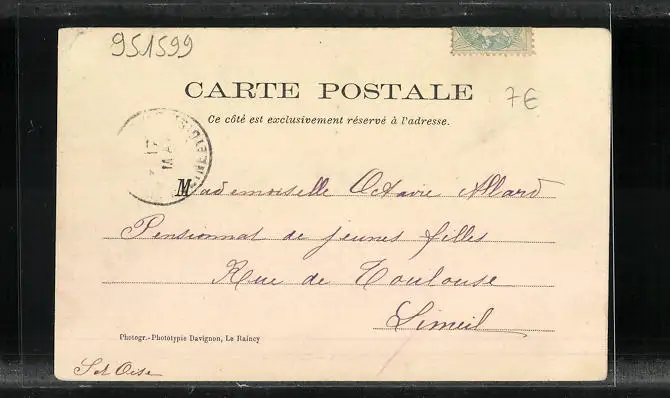 951599
CARTE POSTALE
7€
Ce côté est exclusivement réservé à l'adresse.
17
MAI
Mademoiselle Octavie Allard
Pensionnat de jeunes filles
Rue de Toulouse
Limeil
Photogr.-Phototypie Davignon, Le Raincy
S et Oise